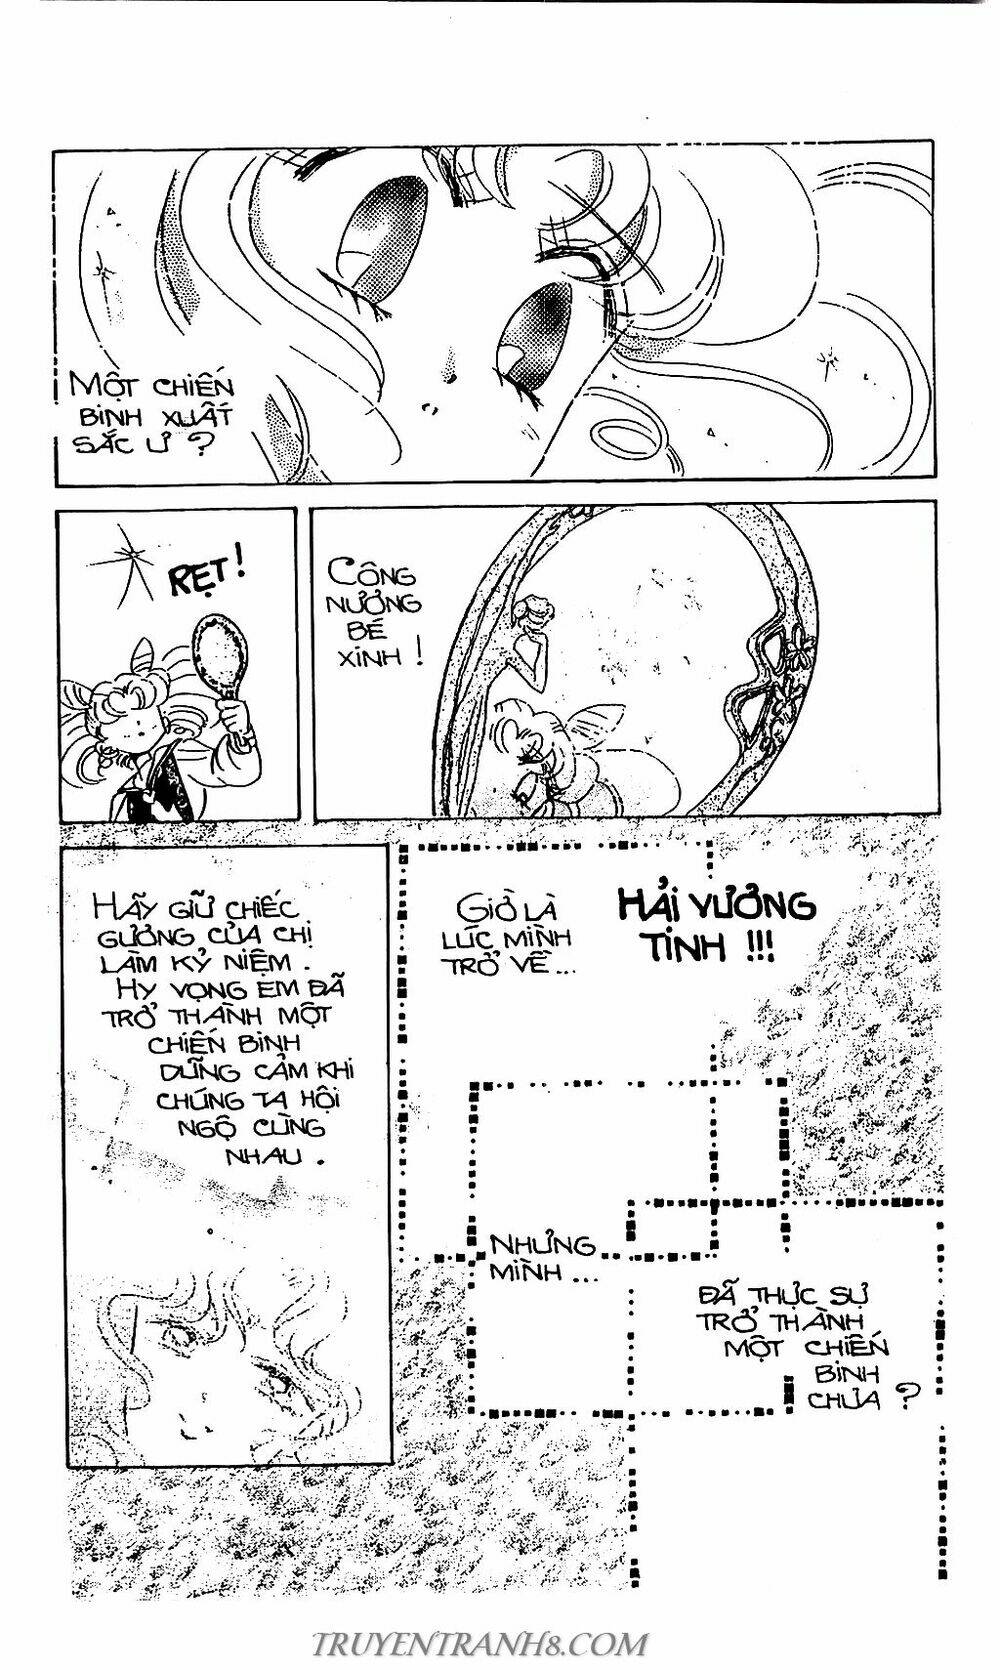 MỘT CHIẾN
BINH XUẤT
SẮC Ư ?
RẸT !
CÔNG
NƯƠNG
BÉ
XINH !
HÃY GIỮ CHIẾC
GƯƠNG CỦA CHỊ
LÀM KỶ NIỆM .
HY VỌNG EM ĐÃ
TRỞ THÀNH MỘT
CHIẾN BINH
DŨNG CẢM KHI
CHÚNG TA HỘI
NGỘ CÙNG
NHAU .
GIỜ LÀ
LÚC MÌNH
TRỞ VỀ ...
HẢI VƯƠNG
TINH !!!
NHƯNG
MÌNH ...
ĐÃ THỰC SỰ
TRỞ THÀNH
MỘT CHIẾN
BINH
CHƯA ?
TRUYENTRANH8.COM